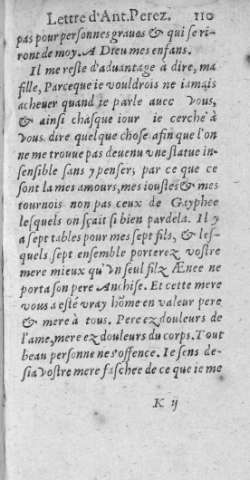 Lettre d'Ant. Perez. 110
pas pour personnes graues & qui se ri-
ront de moy. A Dieu mes enfans.
Il me reste d'aduantage à dire, ma
fille, Parceque ie vouldrois ne iamais
acheuer quand ie parle auec vous,
& ainsi chasque iour ie cerche à
vous dire quelque chose afin que l'on
ne me trouue pas deuenu vne statue in-
sensible sans y penser, par ce que ce
sont la mes amours, mes ioustes & mes
tournois non pas ceux de Gayphee
lesquels on sçait si bien pardela. Il y
a sept tables pour mes sept fils, & les-
quels sept ensemble porterez vostre
mere mieux qu'vn seul filz Ænee ne
porta son pere Anchise. Et cette mere
vous a esté vray hõme en valeur pere
& mere à tous. Pere ez douleurs de
l'ame, mere ez douleurs du corps. Tout
beau personne ne s'offence. Ie sens de-
sia vostre mere faschee de ce que ie me
K ij